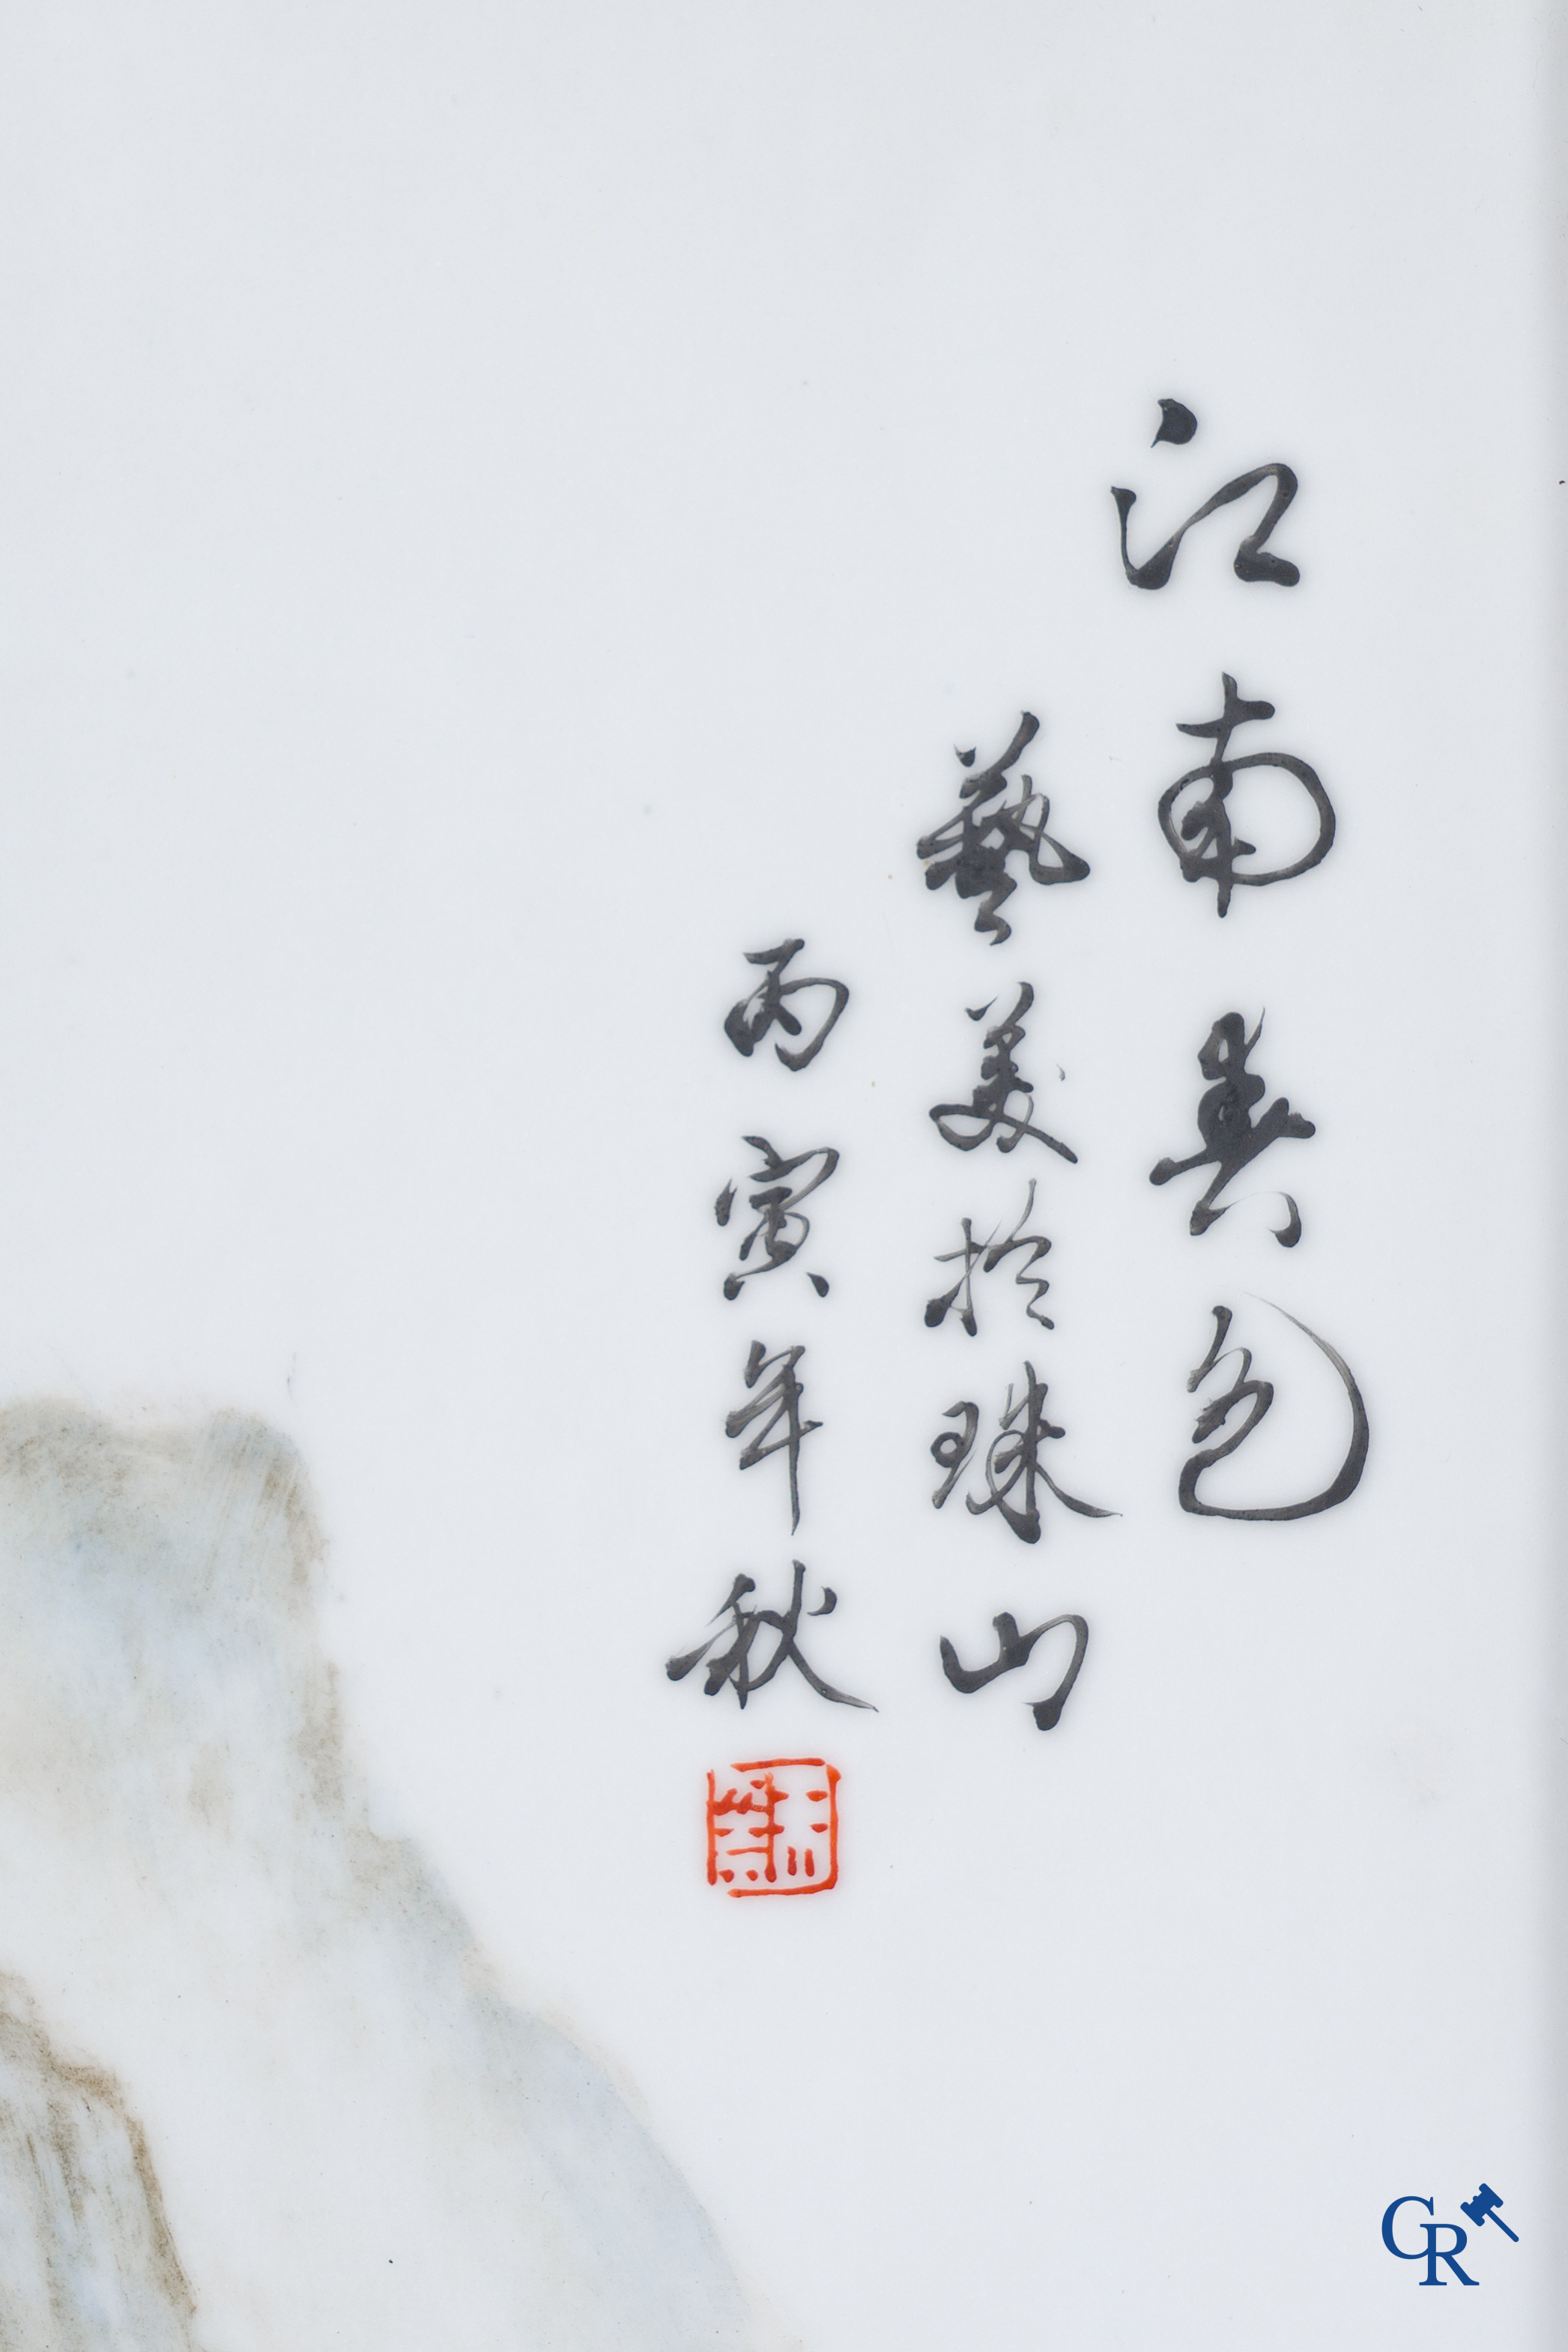 江南春色
藝美於珠山
丙寅年秋
CR